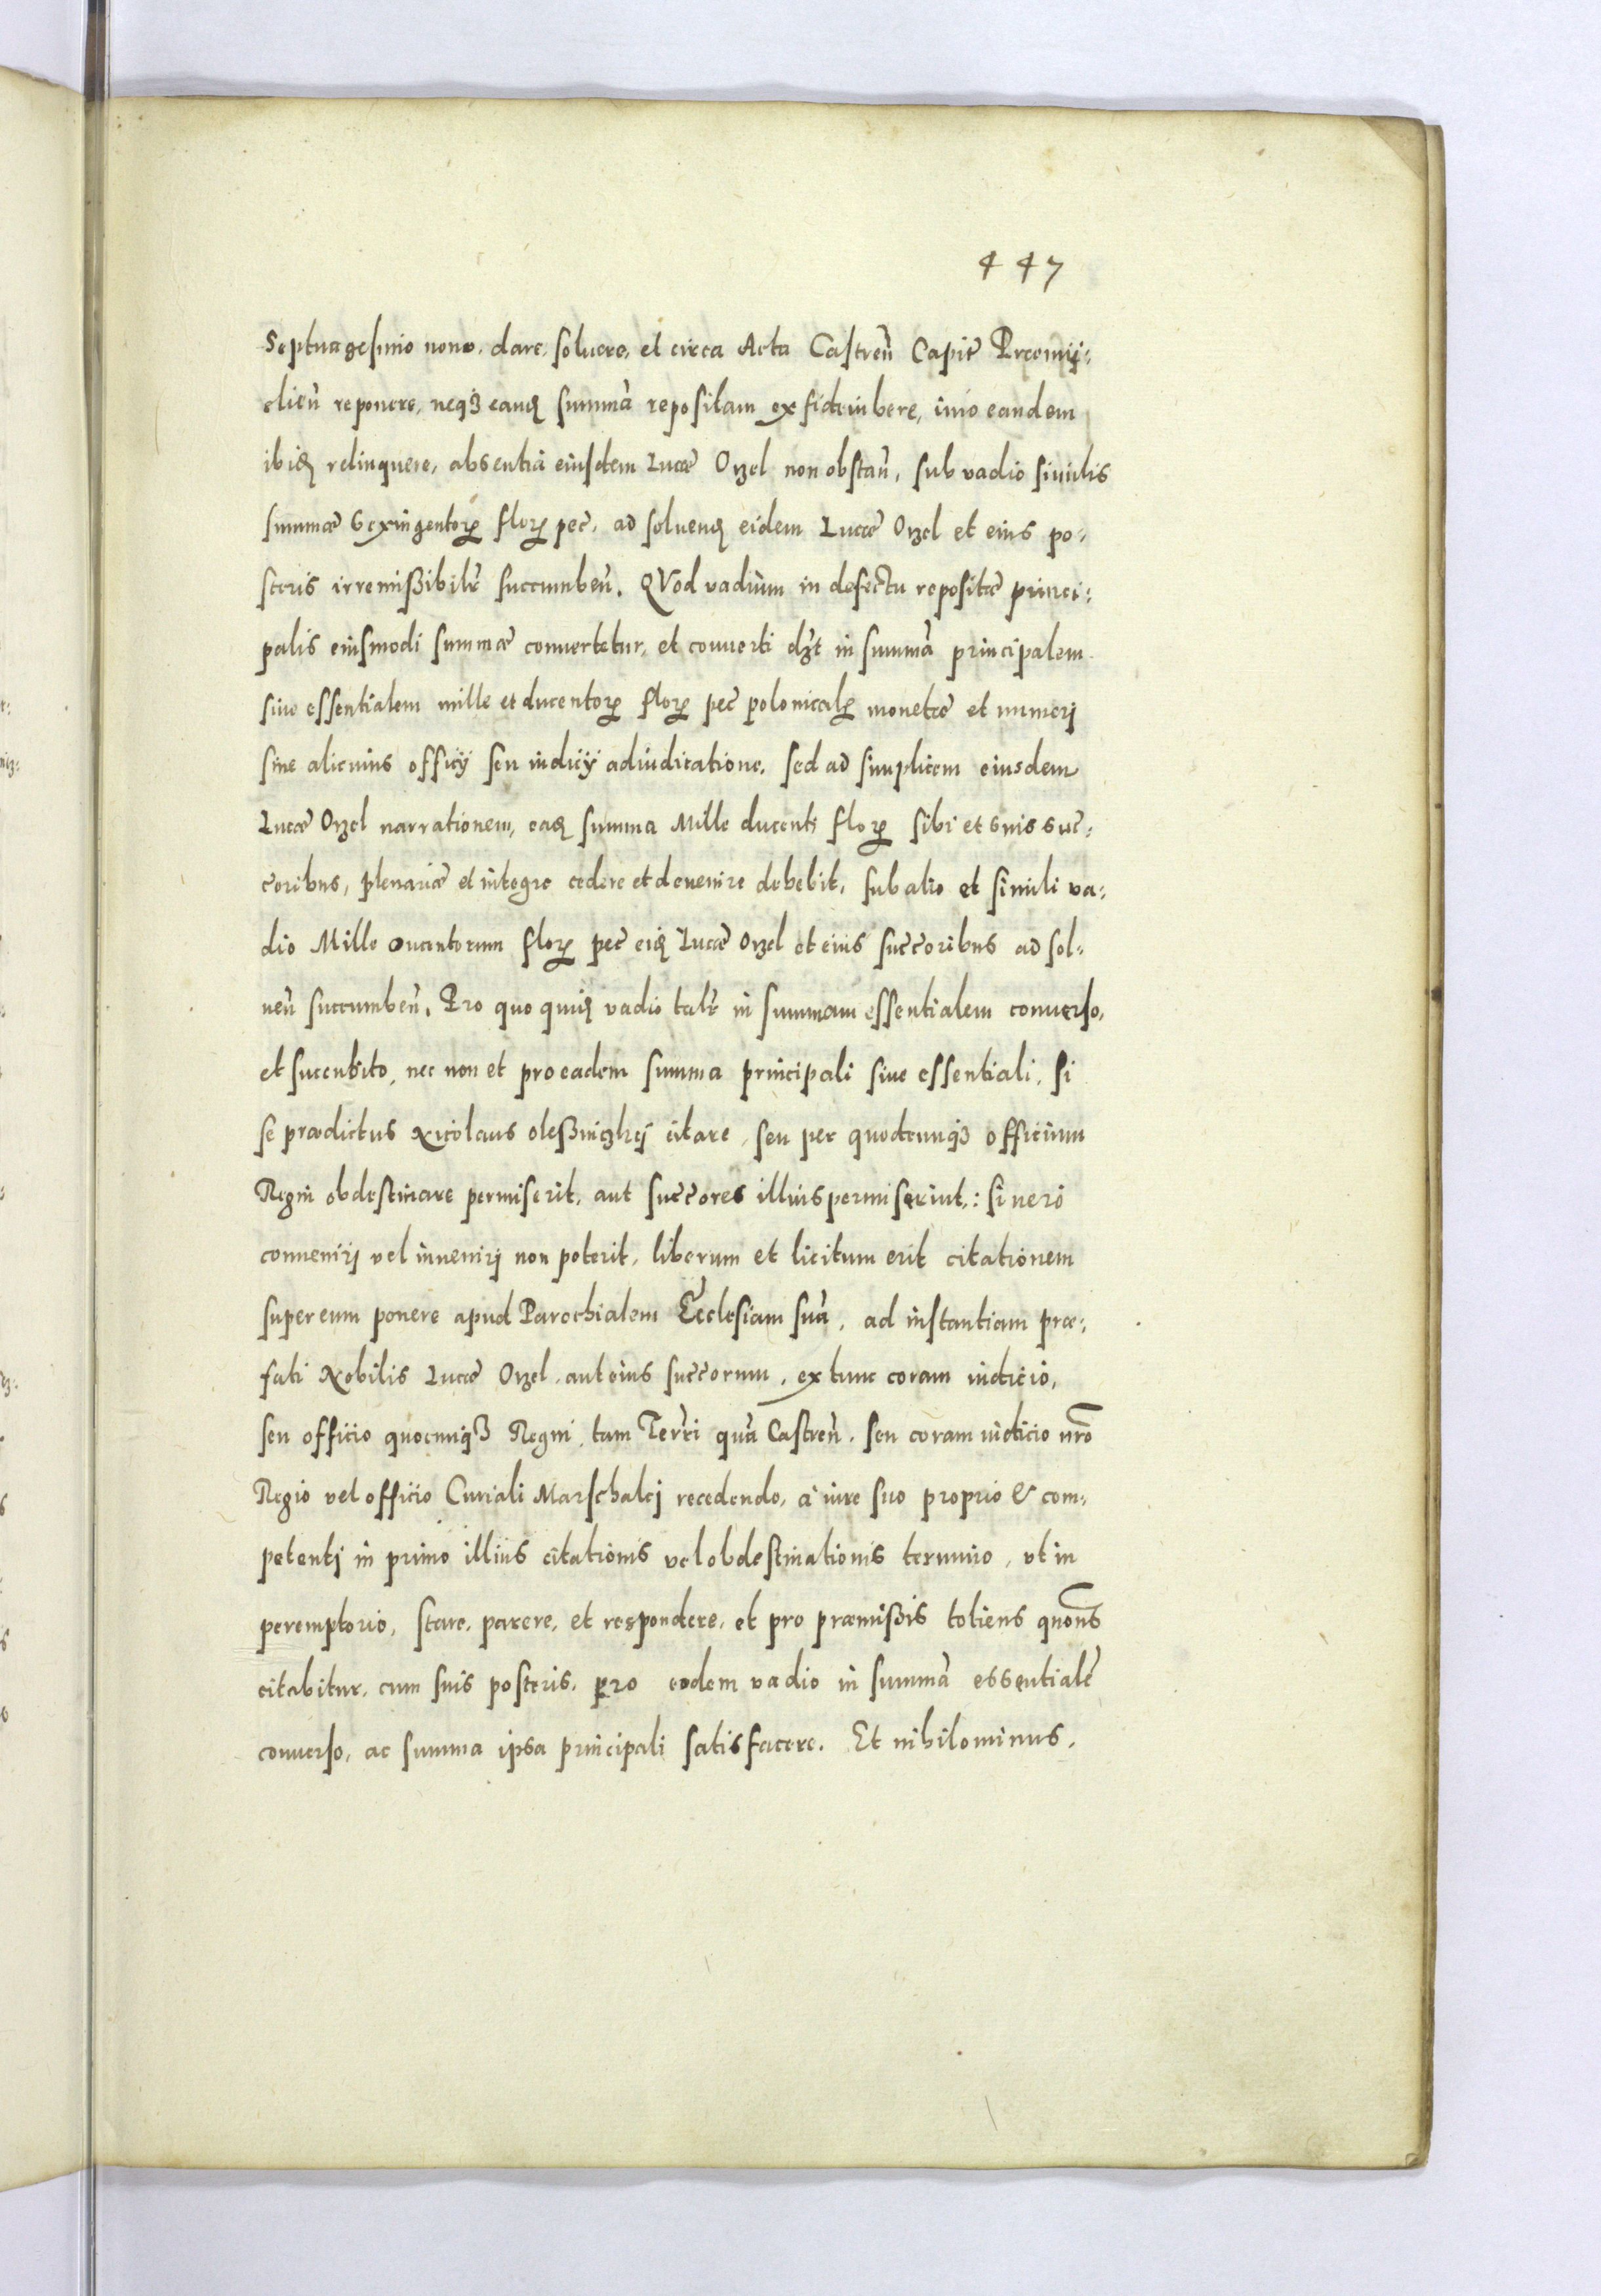 447
Septuagesimo nono, dare, soluere, et circa Acta Castreñ Capit̃ Præmij:
slieñ reponere, neqꝫ eanꝗ summã repositam exfideiubere, imo eandem
ibiꝗ relinquere, absentia eiusdem Lucæ Orzel non obstañ, sub vadio similis
summæ Sexingentoꝝ floꝝ pec̃, ad soluenꝗ eidem Lucæ Orzel et eius po:
steris irremißibilr̃ succumbeñ. QVod vadium in defectu repositæ princi:
palis eiusmodi summæ conuertetur, et conuerti dꝫt in summã principalem
siue essentialem mille et ducentoꝝ floꝝ pec̃ polonicaliꝝ monetæ et numerj
sine alicuius officij seu iudicij adiudicatione, sed ad simplicem eiusdem
Lucæ Orzel narrationem, eaꝗ summa Mille ducenti floꝝ sibi et suis suc̃:
c̃oribus, plenariæ et integre cedere et deuenire debebit, sub alio et simili va:
dio Mille ducentorum floꝝ pec̃ eiꝗ Lucæ Orzel et eius suc̃c̃oribus ad sol:
ueñ succumbeñ. Pro quo quiꝗ vadio talr̃ in summam essentialem conuerso,
et succubito, nec non et pro eadem summa principali siue essentiali, si
se prædictus Nicolaus oleßniczkij citare, seu per quodcunqꝫ officium
Regni obdestinare permiserit, aut suc̃c̃ores illius permiserint,: si uero
conuenirj vel inuenirj non poterit, liberum et licitum erit citationem
super eum ponere apud Parochialem Ecclesiam suã, ad instantiam præ:
fati Nobilis Lucæ Orzel, aut eius suc̃c̃orum, ex tunc coram iudicio,
seu officio quocunqꝫ Regni, tam Terr̃i quã Castreñ, seu coram iudicio nr̃o
Regio vel officio Curiali Marschalcj recedendo, à iure suo proprio & com:
petentj in primo illius citationis vel obdestinationis termino, vt in
peremptorio, stare, parere, et respondere, et pro præmißis totiens quoñs
citabitur, cum suis posteris, pro eodem vadio in summã essentialẽ
conuerso, ac summa ipsa principali satisfacere. Et nihilominus,